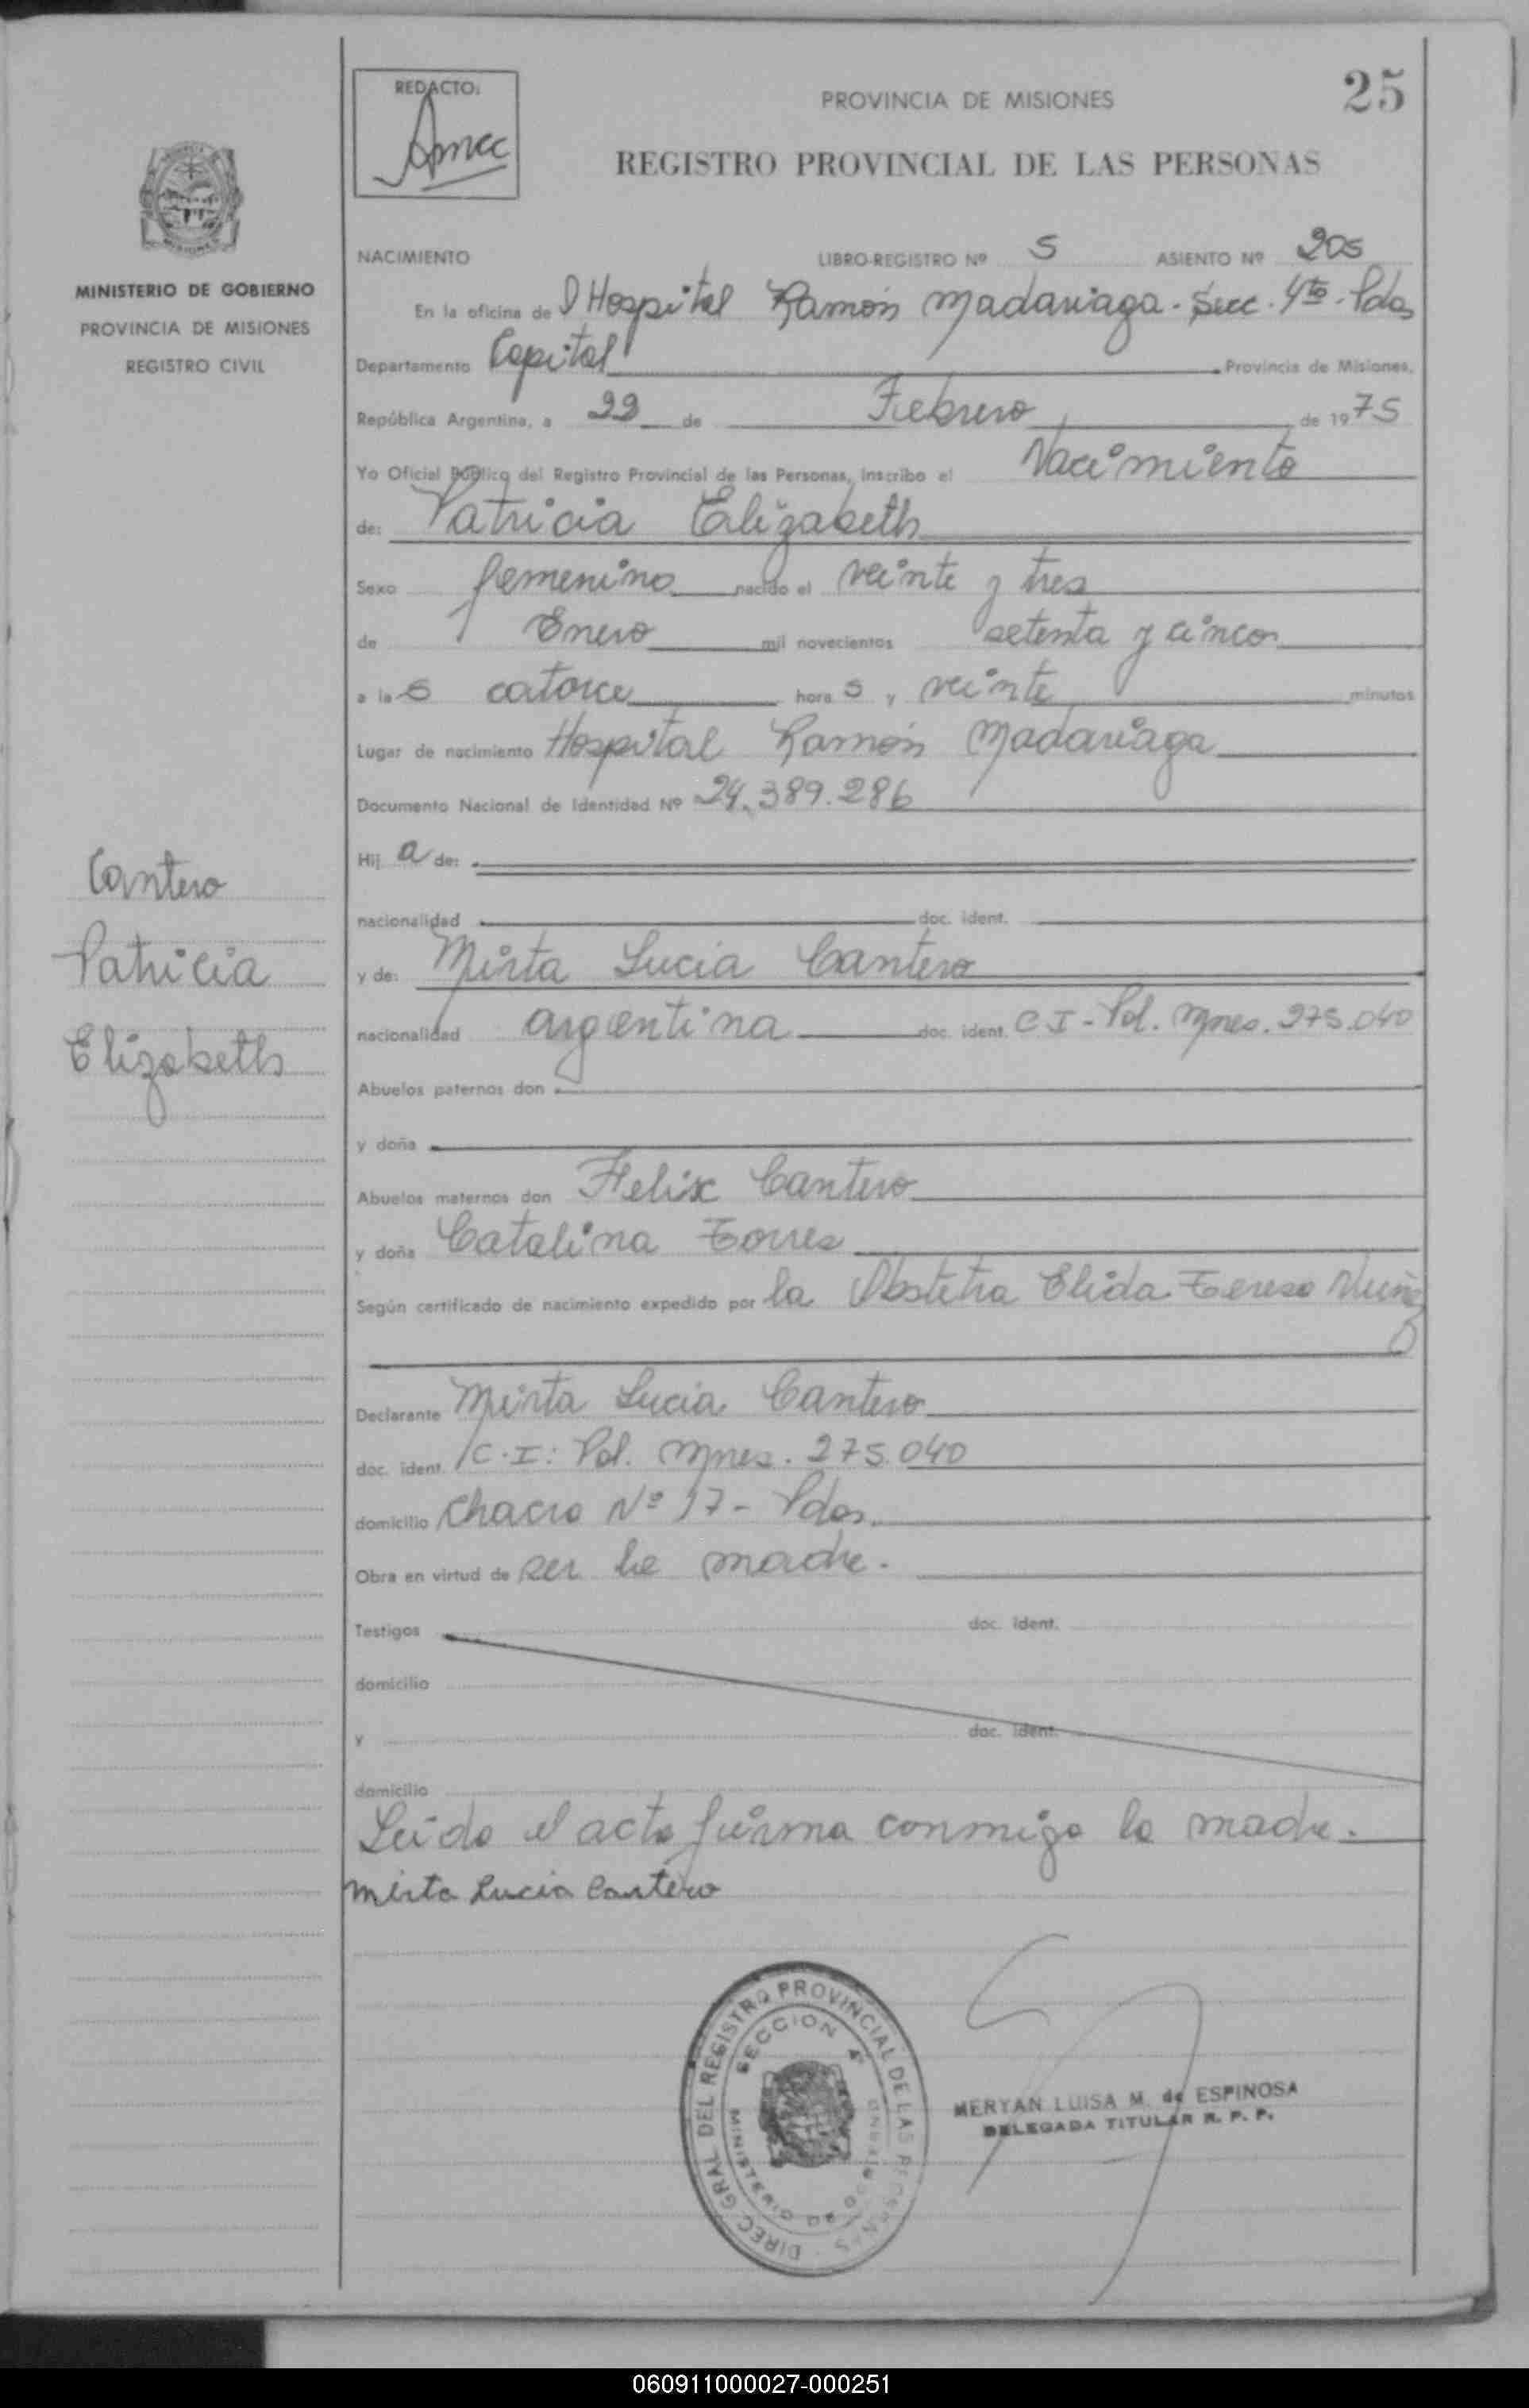 25
REDACTO:
PROVINCIA DE MISIONES
REGISTRO PROVINCIAL DE LAS PERSONAS
MINISTERIO DE GOBIERNO
PROVINCIA DE MISIONES
REGISTRO CIVIL
NACIMIENTO LIBRO-REGISTRO Nº 5 ASIENTO Nº 205
En la oficina del Hospital Ramón Madariaga - Secc. 4ta - Pdas
Departamento Capital Provincia de Misiones,
República Argentina, a 22 de Febrero de 1975
Yo Oficial Público del Registro Provincial de las Personas, inscribo el Nacimiento
de: Patricia Elizabeth
Sexo femenino nacido el veinte y tres
de Enero mil novecientos setenta y cinco
a las catorce horas y veinte minutos
Lugar de nacimiento Hospital Ramón Madariaga
Documento Nacional de Identidad Nº 24.389.286
Hija de:
nacionalidad doc. ident.
y de: Mirta Lucia Cantero
nacionalidad argentina doc. ident. C.I - Pol. Mnes. 275.040
Abuelos paternos don
y doña
Abuelos maternos don Felix Cantero
y doña Catalina Torres
Según certificado de nacimiento expedido por la Obstetra Elida Teresa Nuñez
Declarante Mirta Lucia Cantero
doc. ident. C.I: Pol. Mnes. 275.040
domicilio Chacra Nº 17 - Pdas.
Obra en virtud de ser la madre.
Testigos doc. ident.
domicilio
y doc. ident.
domicilio
Leido el acta firma conmigo la madre.
Mirta Lucia Cantero
Cantero
Patricia
Elizabeth
DIREC. GRAL. DEL REGISTRO PROVINCIAL DE LAS PERSONAS
SECCION 4ª
MINISTERIO DE GOBIERNO
MERYAN LUISA M. de ESPINOSA
DELEGADA TITULAR R. P. P.
060911000027-000251